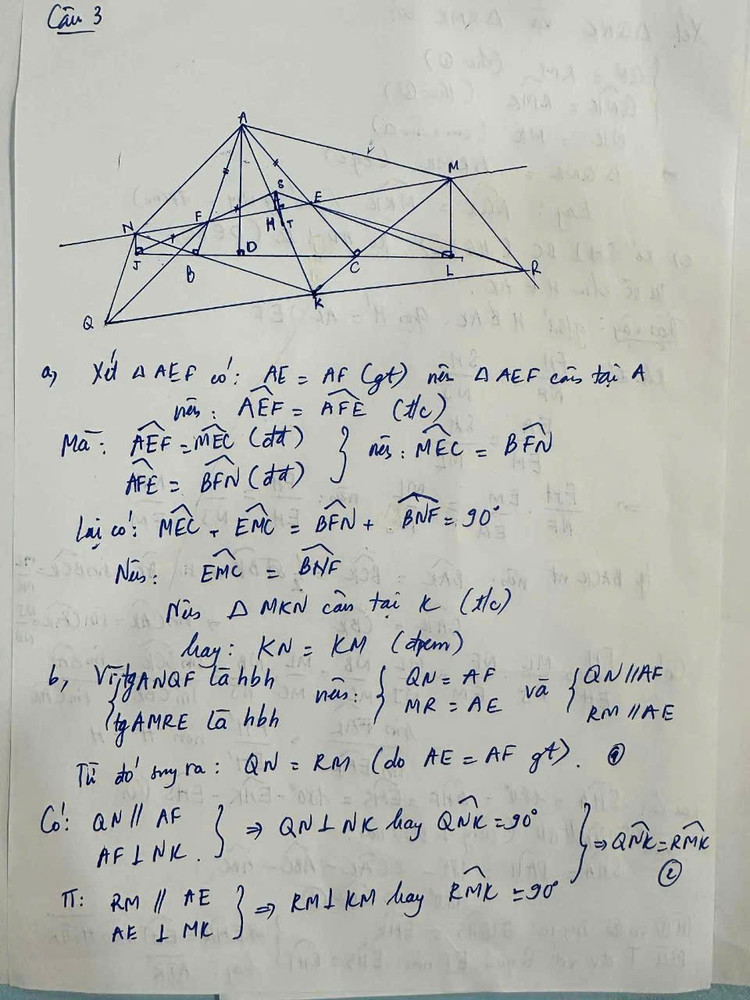 Câu 3
A
M
S
N
F
E
H
T
J
B
D
C
L
R
K
Q
a, Xét △AEF có: AE = AF (gt) nên △AEF cân tại A
nên: \widehat{AEF} = \widehat{AFE} (t/c)
Mà: \widehat{AEF} = \widehat{MEC} (đđ) } nên: \widehat{MEC} = \widehat{BFN}
\widehat{AFE} = \widehat{BFN} (đđ)
Lại có: \widehat{MEC} + \widehat{EMC} = \widehat{BFN} + \widehat{BNF} = 90°
Nên: \widehat{EMC} = \widehat{BNF}
Nên △MKN cân tại K (t/c)
hay: KN = KM (đpcm)
b, Vì { tg ANQF là hbh nên: { QN = AF và { QN // AF
tg AMRE là hbh MR = AE RM // AE
Từ đó suy ra: QN = RM (do AE = AF gt). ①
Có: QN // AF } ⇒ QN ⊥ NK hay \widehat{QNK} = 90° } ⇒ \widehat{QNK} = \widehat{RMK}
AF ⊥ NK. ②
TT: RM // AE } ⇒ RM ⊥ KM hay \widehat{RMK} = 90°
AE ⊥ MK